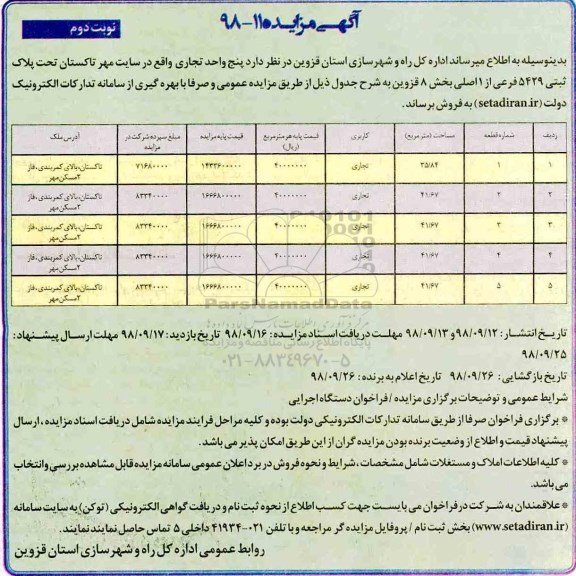 آگهی مزایده ۱۱-۹۸
نوبت دوم
بدینوسیله به اطلاع میرساند اداره کل راه و شهرسازی استان قزوین در نظر دارد پنج واحد تجاری واقع در سایت مهر تاکستان تحت پلاک
ثبتی ۵۴۲۹ فرعی از ۱ اصلی بخش ۸ قزوین به شرح جدول ذیل از طریق مزایده عمومی و صرفا با بهره گیری از سامانه تدارکات الکترونیک
دولت (setadiran.ir) به فروش برساند.
ردیف شماره قطعه مساحت (متر مربع) کاربری قیمت پایه هر متر مربع (ریال) قیمت پایه مزایده مبلغ سپرده شرکت در مزایده آدرس ملک
۱ ۱ ۳۵/۸۴ تجاری ۴۰۰۰۰۰۰۰ ۱۴۳۳۶۰۰۰۰۰ ۷۱۶۸۰۰۰۰ تاکستان، بالای کمربندی، فاز ۲ مسکن مهر
۲ ۲ ۴۱/۶۷ تجاری ۴۰۰۰۰۰۰۰ ۱۶۶۶۸۰۰۰۰۰ ۸۳۳۴۰۰۰۰ تاکستان، بالای کمربندی، فاز ۲ مسکن مهر
۳ ۳ ۴۱/۶۷ تجاری ۴۰۰۰۰۰۰۰ ۱۶۶۶۸۰۰۰۰۰ ۸۳۳۴۰۰۰۰ تاکستان، بالای کمربندی، فاز ۲ مسکن مهر
۴ ۴ ۴۱/۶۷ تجاری ۴۰۰۰۰۰۰۰ ۱۶۶۶۸۰۰۰۰۰ ۸۳۳۴۰۰۰۰ تاکستان، بالای کمربندی، فاز ۲ مسکن مهر
۵ ۵ ۴۱/۶۷ تجاری ۴۰۰۰۰۰۰۰ ۱۶۶۶۸۰۰۰۰۰ ۸۳۳۴۰۰۰۰ تاکستان، بالای کمربندی، فاز ۲ مسکن مهر
ParsNamadData
پایگاه اطلاع رسانی مناقصه و مزایده
۰۲۱-۸۸۳۴۹۶۷۰-۵
تاریخ انتشار: ۹۸/۰۹/۱۲ و ۹۸/۰۹/۱۳ مهلت دریافت اسناد مزایده: ۹۸/۰۹/۱۶ تاریخ بازدید: ۹۸/۰۹/۱۷ مهلت ارسال پیشنهاد:
۹۸/۰۹/۲۵
تاریخ بازگشایی: ۹۸/۰۹/۲۶ تاریخ اعلام به برنده: ۹۸/۰۹/۲۶
شرایط عمومی و توضیحات برگزاری مزایده / فراخوان دستگاه اجرایی
* برگزاری فراخوان صرفا از طریق سامانه تدارکات الکترونیکی دولت بوده و کلیه مراحل فرایند مزایده شامل دریافت اسناد مزایده، ارسال
پیشنهاد قیمت و اطلاع از وضعیت برنده بودن مزایده گران از این طریق امکان پذیر می باشد.
* کلیه اطلاعات املاک و مستغلات شامل مشخصات، شرایط و نحوه فروش در برد اعلان عمومی سامانه مزایده قابل مشاهده بررسی و انتخاب
می باشد.
* علاقمندان به شرکت در فراخوان می بایست جهت کسب اطلاع از نحوه ثبت نام و دریافت گواهی الکترونیکی (توکن) به سایت سامانه
(www.setadiran.ir) بخش ثبت نام / پروفایل مزایده گر مراجعه و با تلفن ۰۲۱-۴۱۹۳۴ داخلی ۵ تماس حاصل نمایند نمایند.
روابط عمومی اداره کل راه و شهرسازی استان قزوین